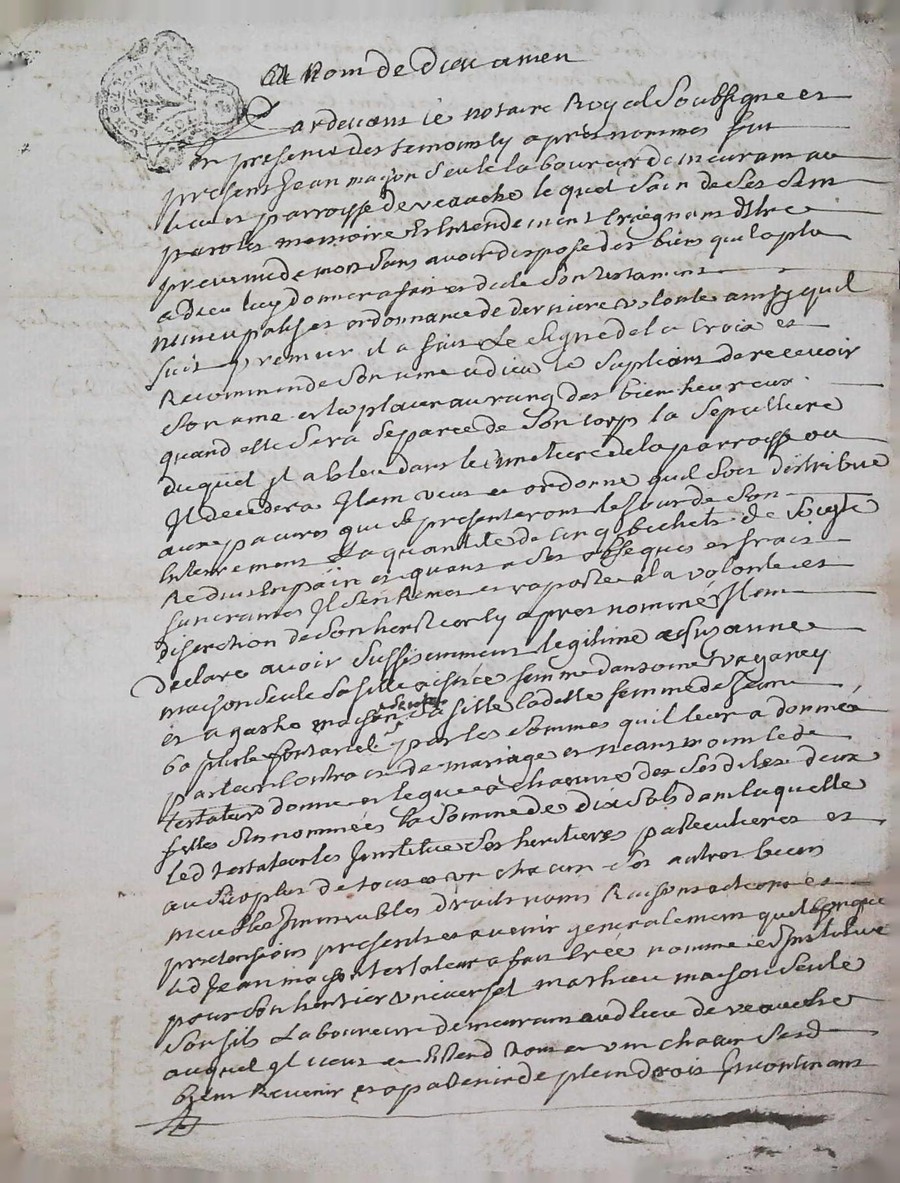 Au Nom de dieu amen
Pardevant le notaire Royal Soubsigne et
en presence des temoins cy apres nommes fut
present Jean maçon Seule laboureur demeurant au
lieu et parroisse de veauche lequel Sain de Ses Sens
parolle memoire et Entendement Craignant dEtre
prevenu de mort Sans avoir dispose des biens quil a plu
a dieu luy donner a fait et dicte Son testament
nuncupatif et ordonnance de derniere volonte ainsy quil
Suit premier il a fait le Signe de la Croix et
Recommende Son ame a dieu le Supliant de recevoir
Son ame et la placer au rang des bienheureux
quand elle Sera Separee de Son corps la Sepulture
duquel il a Eleu dans le cimetiere de la parroisse ou
Il decedera Item veut et ordonne quil Soit distribue
aux pauvres qui Se presenteront le Jour de Son
Enterrement la quantite de cinq bichets de Seigle
Reduis En pain et quant a Ses obseques et frais
funeraires Il Sen Remet et raporte a la volonte et
discretion de Son heritier cy apres nomme Item
Declare avoir Suffisemment legitime a Suzanne
maison Seule Sa fille femme dantoine
et agathe maison Seule Sa fille ladette femme de Jean
par les Sommes quil leur a donné
par leur Contract de mariage et neantmoins led
testateur donne et legue a chacune des Sesdites deux
filles Susnommées la Somme de Dix Sols dans laquelle
led testateur les Institue Ses heritieres particulieres et
au Surplus de tous et un chacun Ses autres biens
meubles Immeubles droits noms Raisons actions et
pretensions presents et avenir generalement quelconque
led Jean maçon testateur a fait Cree nomme et Institue
pour Son heritier Universel mathieu maison Seule
Son fils Laboureur demeurant aud lieu de veauche
auquel Il veut et Entend tous et un chacun Sesd
biens Revenir et apartenir de plein droit Incontinant